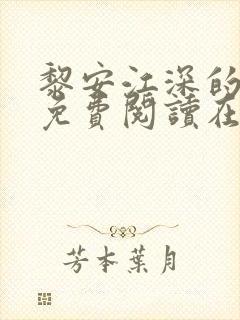 黎安江深的
免費閱讀在
芳本葉月